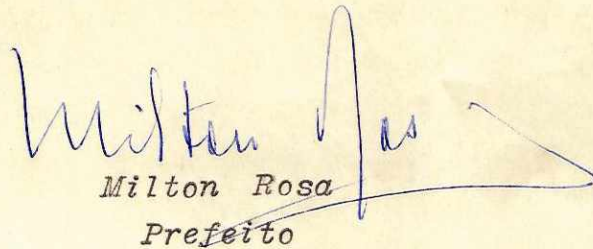 Milton Rosa
Milton Rosa
Prefeito